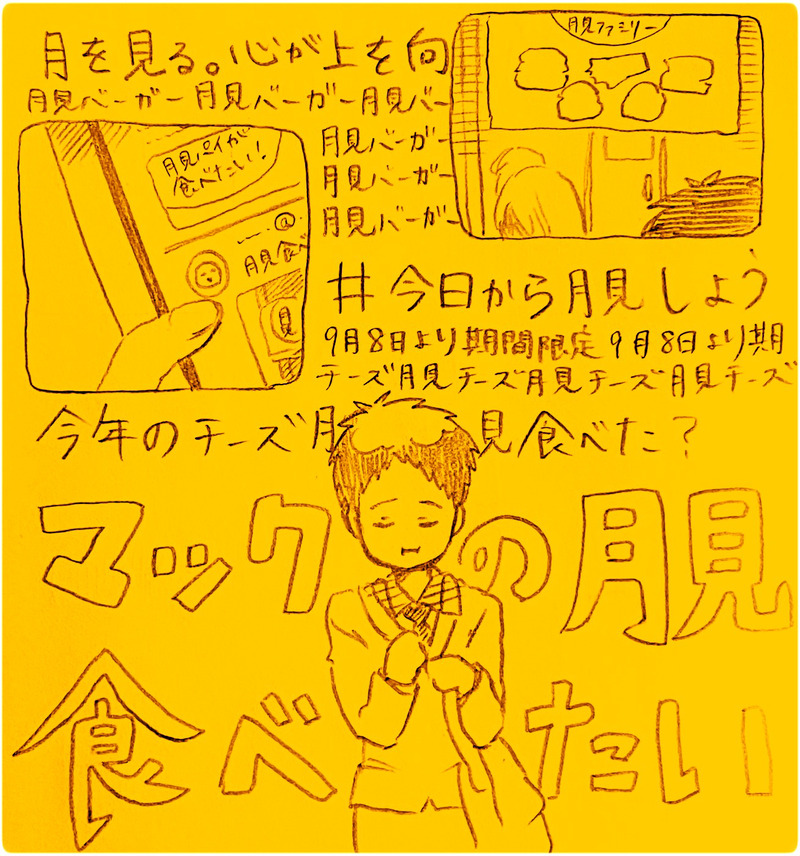 月を見る。心が上を向
月見バーガー月見バーガー月見バー
月見ファミリー
月見バーガー
月見バーガー
月見バーガー
月見パイが
食べたい!
@
月見食べ
月見
#今日から月見しよう
9月8日より期間限定 9月8日より期
チーズ月見チーズ月見チーズ月見チーズ
今年のチーズ月見食べた?
マックの月見
食べたい